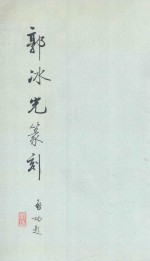 郭冰光篆刻
启功题